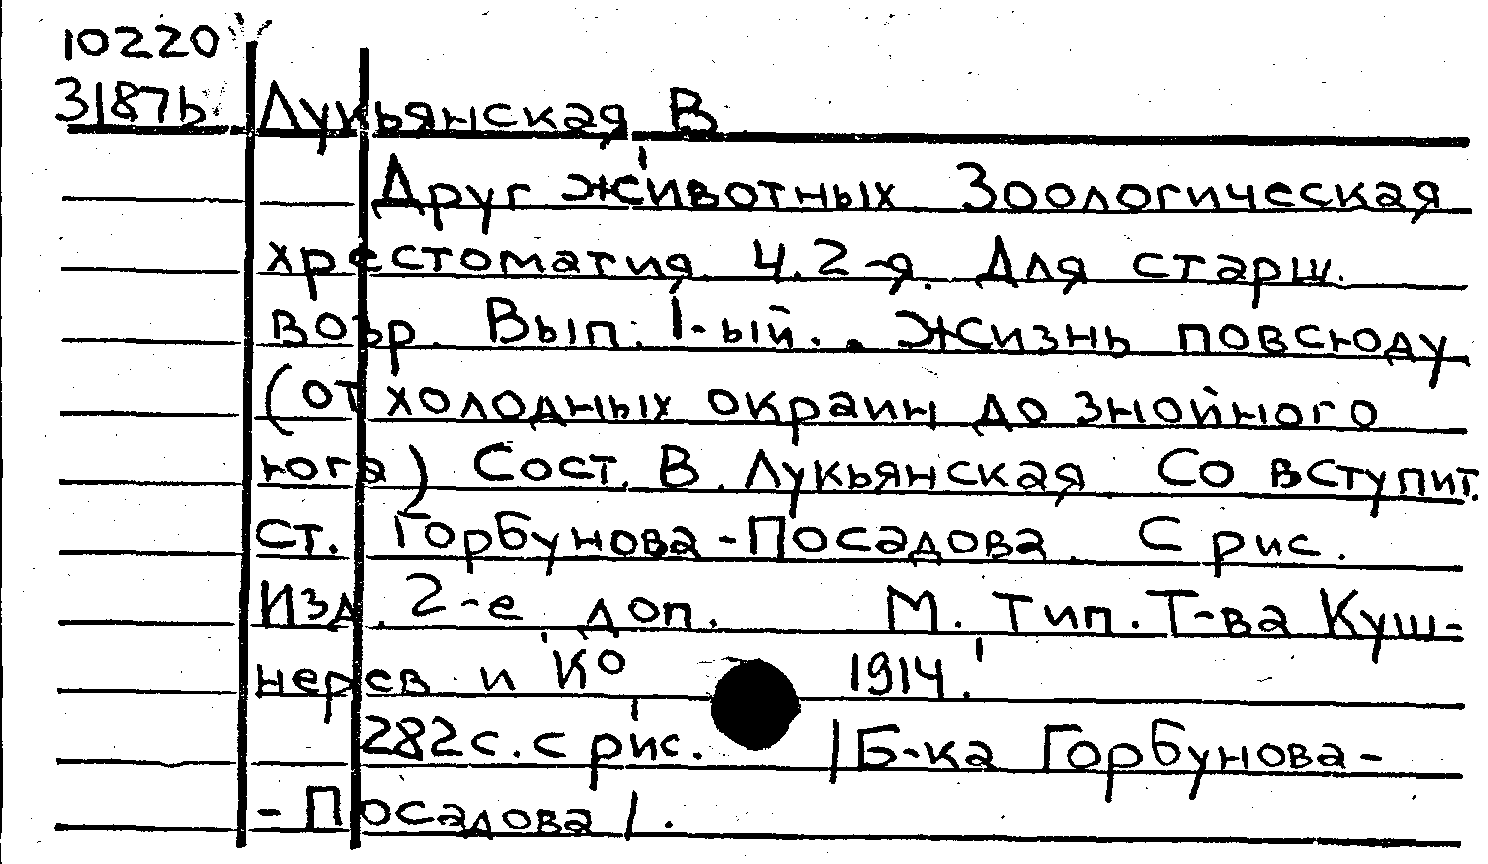 10220
3187ь. Лукьянская В
Друг животных Зоологическая
хрестоматия. Ч.2-я. Для старш.
возр. Вып. I-ый.. Жизнь повсюду
(от холодных окраин до знойного
юга) Сост. В. Лукьянская Со вступит.
ст. Горбунова-Посадова. С рис.
Изд. 2-е доп. М. Тип. Т-ва Куш-
нерев и Ко 1914.
282с. с рис. |Б-ка Горбунова-
-Посадова|.